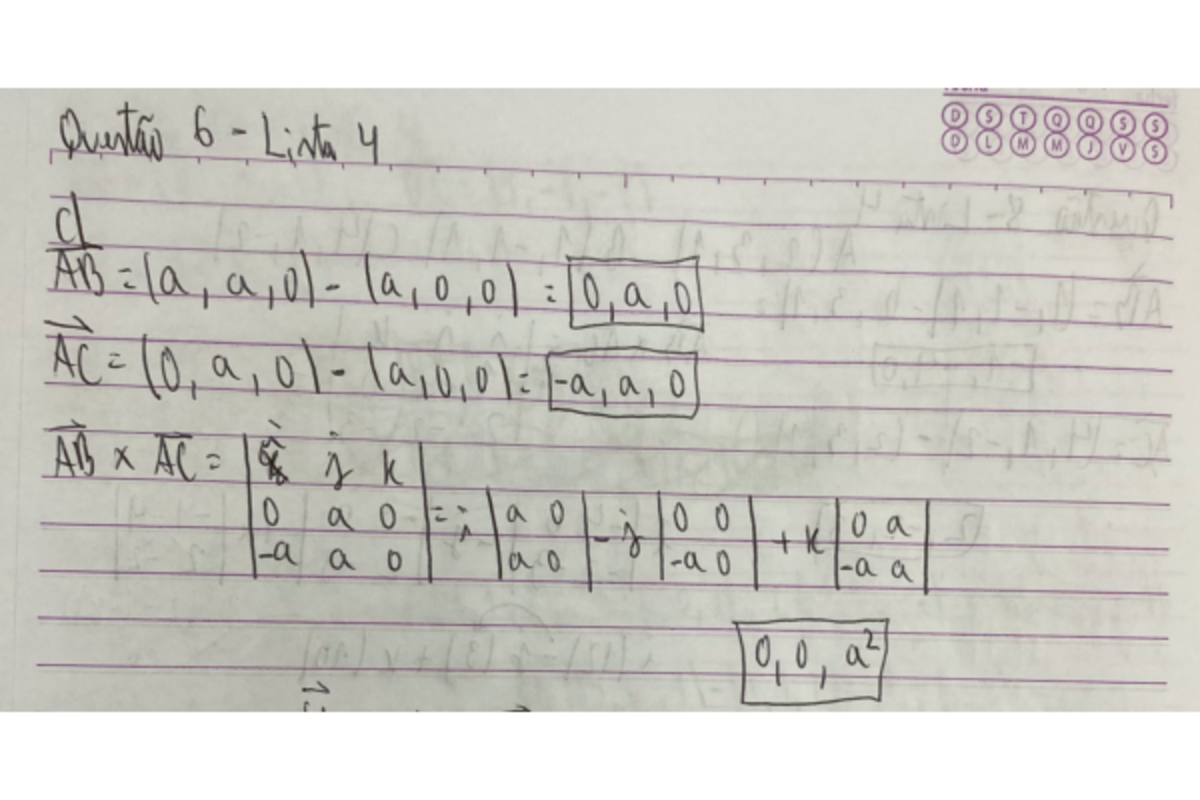 Questão 6 - Lista 4
D S T Q Q S S
D L M M J V S
c)
AB = (a, a, 0) - (a, 0, 0) = 0, a, 0
AC = (0, a, 0) - (a, 0, 0) = -a, a, 0
AB x AC = | i j k |
| 0 a 0 | = i | a 0 | - j | 0 0 | + k | 0 a |
| -a a 0 | | a 0 | | -a 0 | | -a a |
0, 0, a²